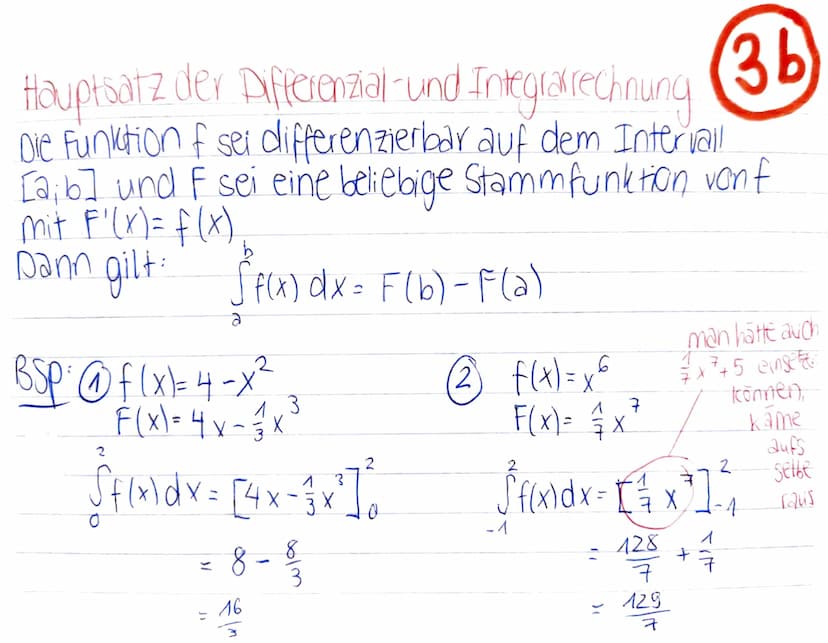 3b
Hauptsatz der Differenzial- und Integralrechnung
Die Funktion f sei differenzierbar auf dem Intervall
[a,b] und F sei eine beliebige Stammfunktion von f
mit F'(x) = f(x)
Dann gilt: ∫_a^b f(x) dx = F(b) - F(a)
BSP: ① f(x) = 4 - x²
F(x) = 4x - 1/3 x³
∫_0^2 f(x) dx = [4x - 1/3 x³]_0^2
= 8 - 8/3
= 16/3
② f(x) = x⁶
F(x) = 1/7 x⁷
∫_-1^2 f(x) dx = [1/7 x⁷]_-1^2
= 128/7 + 1/7
= 129/7
man hätte auch
1/7 x⁷ + 5
können,
käme
aufs
selbe
raus